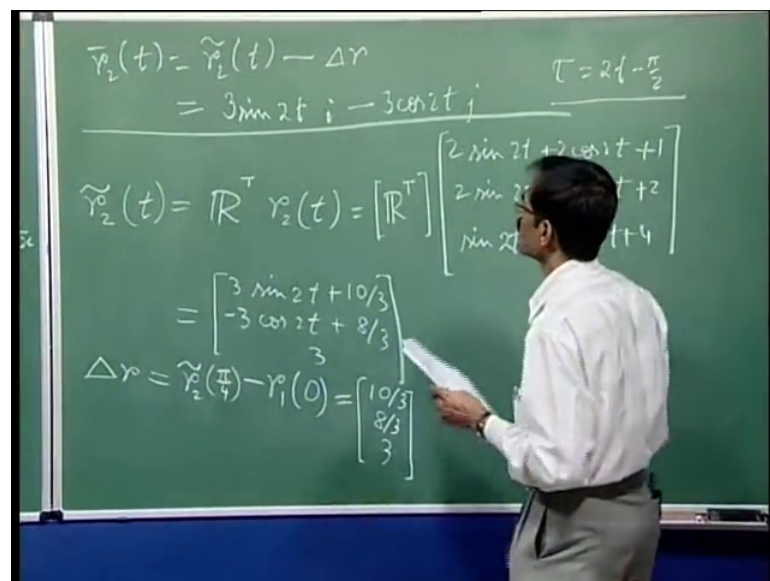 r̄₂(t) = r̃₂(t) − Δr
= 3 sin 2t i − 3 cos 2t j
τ = 2t − π/2
r̃₂(t) = ℝᵀ r₂(t) = [ℝᵀ] [2 sin 2t + 2 cos 2t + 1
2 sin t + 2
sin 2t t + 4]
= [3 sin 2t + 10/3
−3 cos 2t + 8/3
3]
Δr = r̃₂(π/4) − r₁(0) = [10/3
8/3
3]